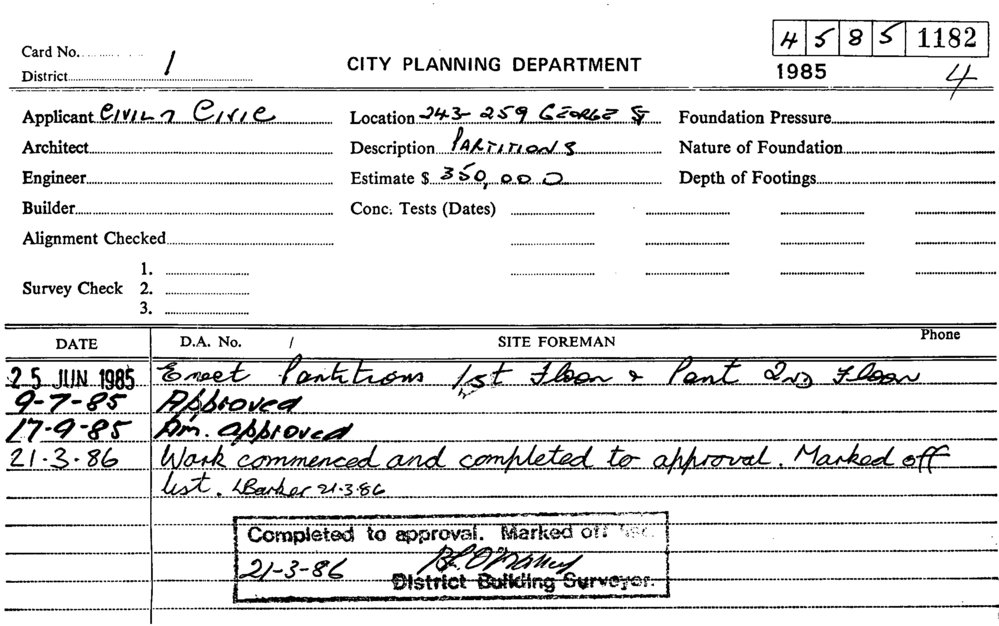 4 5 8 5 1182
Card No.
District 1
CITY PLANNING DEPARTMENT
1985 4
Applicant CIVIL & CIVIC
Location 243-259 GEORGE St
Foundation Pressure
Architect
Description PARTITIONS
Nature of Foundation
Engineer
Estimate $ 350,000
Depth of Footings
Builder
Conc. Tests (Dates)
Alignment Checked
Survey Check
1.
2.
3.
DATE D.A. No. / SITE FOREMAN Phone
25 JUN 1985 Erect Partitions 1st Floor & Part 2nd Floor
9-7-85 Approved
17-9-85 Am. approved
21.3.86 Work commenced and completed to approval. Marked off
list. LBarker 21.3.86
Completed to approval. Marked off list.
21-3-86
District Building Surveyor.